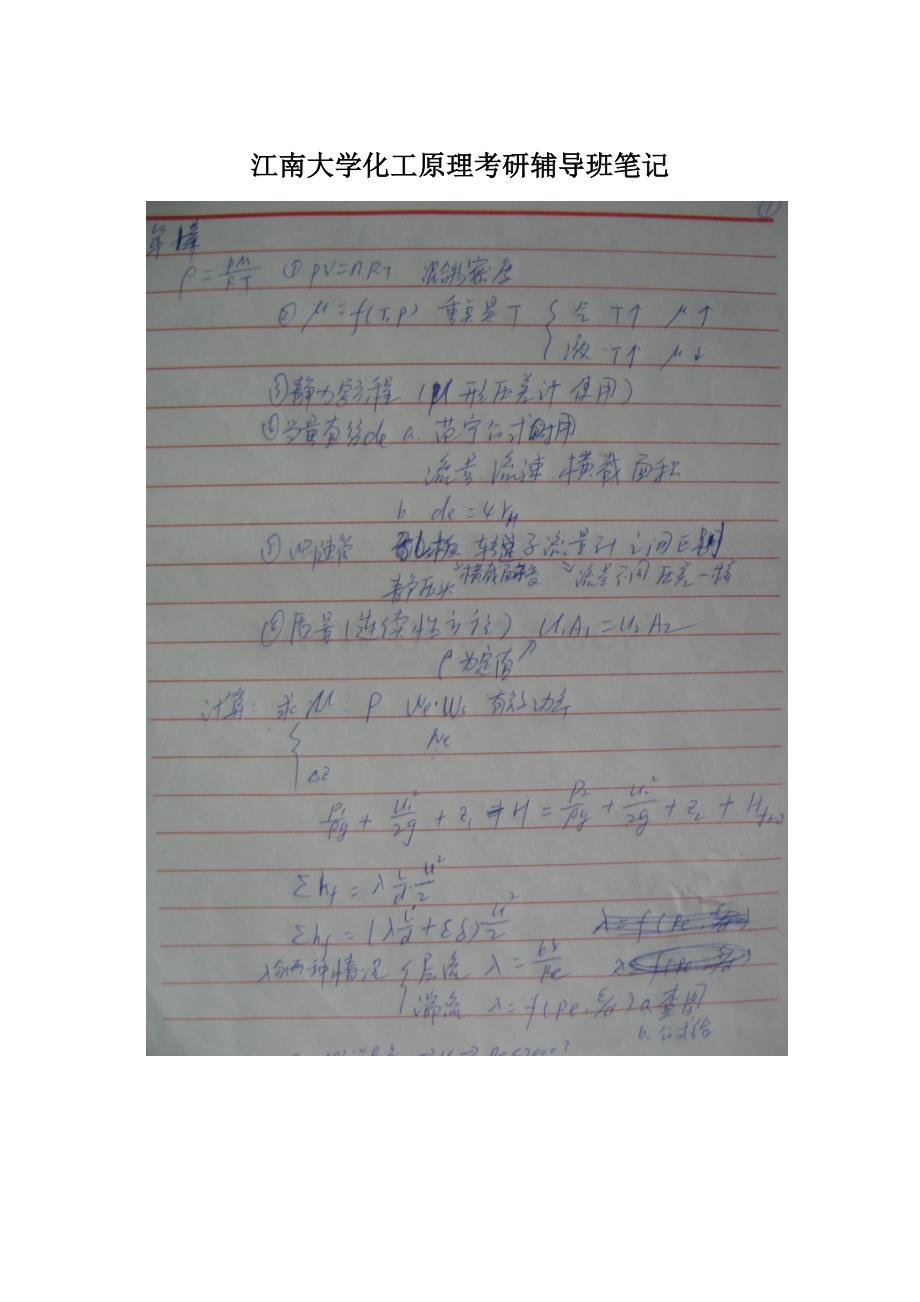 江南大学化工原理考研辅导班笔记
①
第1章
ρ = PM/RT ① PV=nRT 混合物密度
② μ=f(T,P) 重点是T { 气 T↑ μ↑
液 T↑ μ↓
③静力学方程 (U形压差计 使用)
④当量直径de a. 范宁公式时用
流量.流速.横截面积
b. de=4rH
⑤ 孔板 转子流量计 之间区别
静压头 横截面 流量不同 压差一样
⑥质量(连续性方程) u₁A₁=u₂A₂
ρ为定值↗
计算: 求 P We·Ws 有效功率
Ne
Δz
P₁/ρg + u₁²/2g + z₁ + H = P₂/ρg + u₂²/2g + z₂ + Hf1-2
Σhf = λ l/d · u²/2
Σhf = (λ l/d + Σξ) u²/2
λ分两种情况 { 层流 λ = 64/Re
湍流 λ=f(Re, ε/d) a.查图
b.公式给